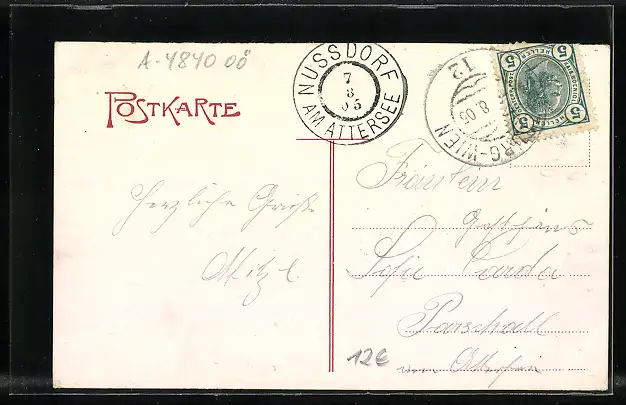 A-4840 OÖ
POSTKARTE
NUSSDORF
AM ATTERSEE
7
8
05
12
8.05
RG-WIEN
5 HELLER 5
5 HELLER 5
Fräulein
Herzliche Grüße
Gasthaus
Mitzi
Sofie
Parschall
12€
am Attersee